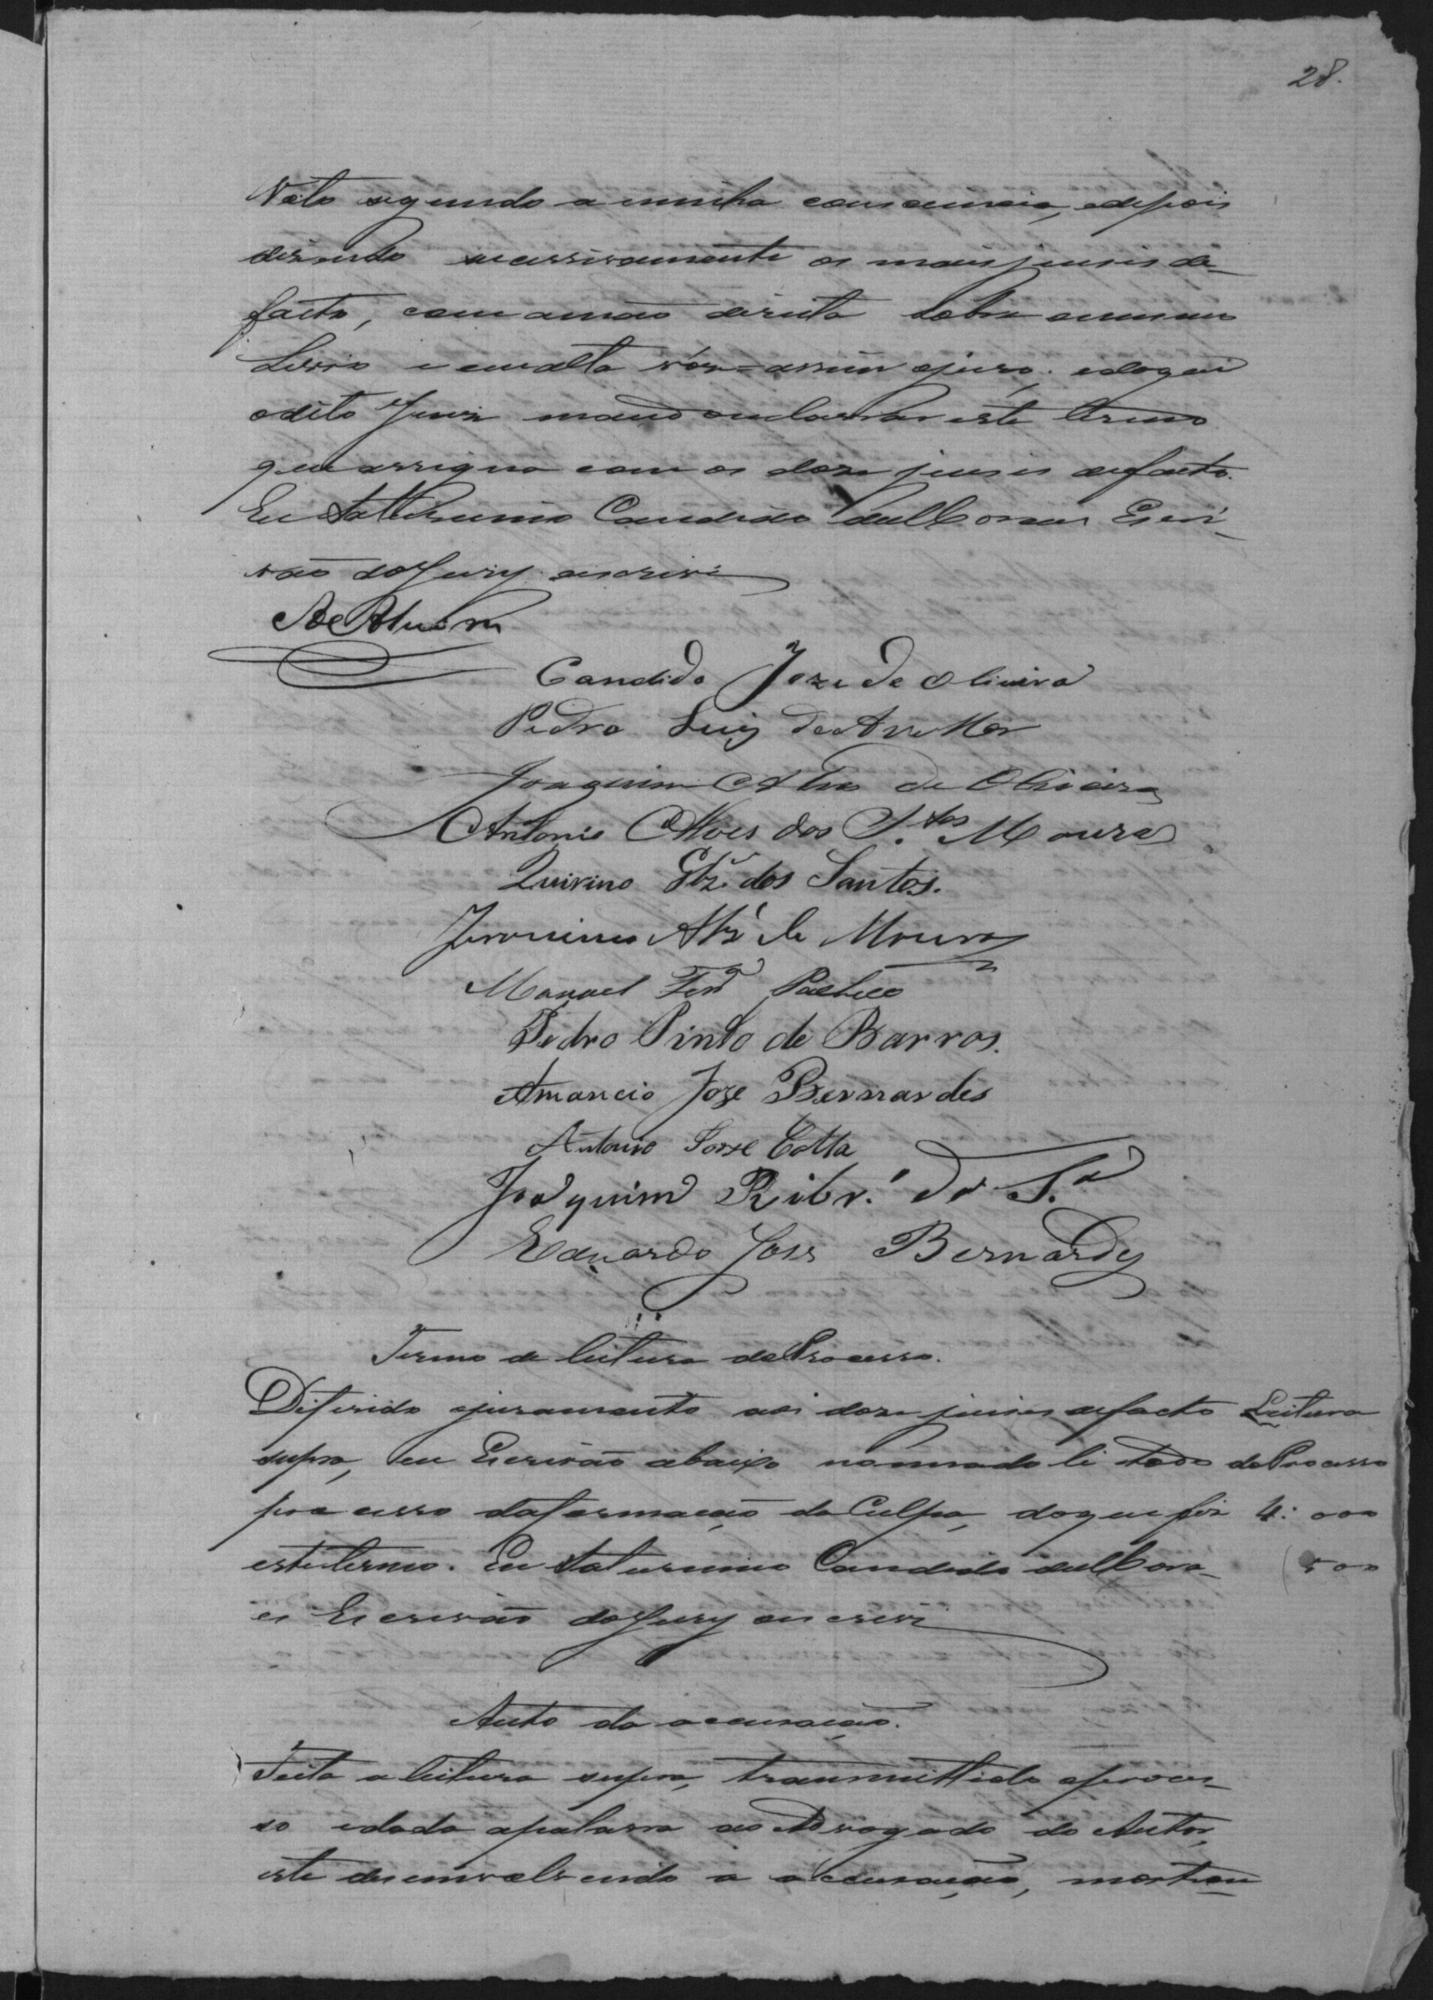 28.
Voto segundo a minha consciencia, e depois
disendo successivamente os mais juises de
facto, com a mão direita sobre o mesmo
Livro e em alta vós = assim o juro. e logo eu
o dito Juis mandou lavrar este termo
que assigna com os dose juises de facto.
Eu Saturnino Candido de Moraes Escri-
vão do Jury escrevi
Candido Joze de Oliveira
Pedro Luiz de
Joaquim Alves de Oliveira
Antonio Alves dos S.tos Moura
Quirino Glz. dos Santos.
Jeronimo Alz' de Moura
Manoel Ferr.a Pacheco
Pedro Pinto de Barros.
Amancio Joze Bernardes
Antonio José Cotta
Joaquim Ribr.o da S.a
Eduardo José Bernardes
Termo de leitura do Processo.
Diferido o juramento aos dose juises de facto
supra, eu Escrivão abaixo nomeado li todo
processo da formação da Culpa, do que fis
este termo. Eu Saturnino Candido de Mora-
es Escrivão do Jury escrevi
Leitura
do Processo
4: 000
500
Auto da accusação.
Feita a leitura supra, transmittido o proces-
so e dada a palavra ao Advogado do Autor,
este desenvolvendo a accusação, mostrou